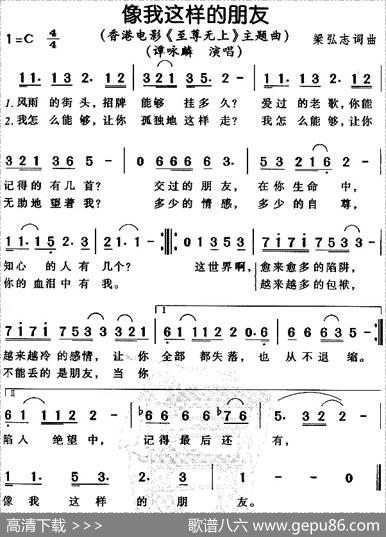 像我这样的朋友
1=C 4/4 （香港电影《至尊无上》主题曲） 梁弘志 词曲
（谭咏麟 演唱）
11. 13 2. 12 321 321 2 - 11. 13 2. 12
1. 风雨的街头，招牌能够挂多久？爱过的老歌，你能
2. 我怎么能够，让你孤独地这样走？我怎么能够，让你
321 36 5 - 0 666 6. 3 5. 321 6 2 -
记得的有几首？交过的朋友，在你生命中，
无助地望着我？多少的情感，多少的自尊，
11. 15 2. 3 21. 1 - 01353 7171 7533
知心的人有几个？这世界啊，愈来愈多的陷阱，
你的血泪中有我。越来越多的包袱，
7171 7533 321 61 1122 0. 6 6665 5 -
越来越冷的感情，让你全部都失落，也从不退缩。
不能丢的是朋友，当你
61 1122 - b6 66 6 b76 5. 322 -
陷入绝望中，记得最后还有，
1 1. 5 3. 2. 3 1 - - -
像我这样的朋友。
高清下载 >>> 歌谱八六 www.gepu86.com